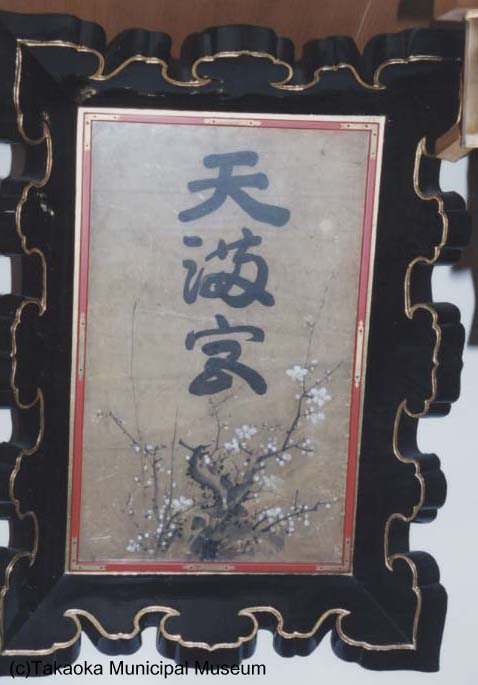 天満宮
(c)Takaoka Municipal Museum